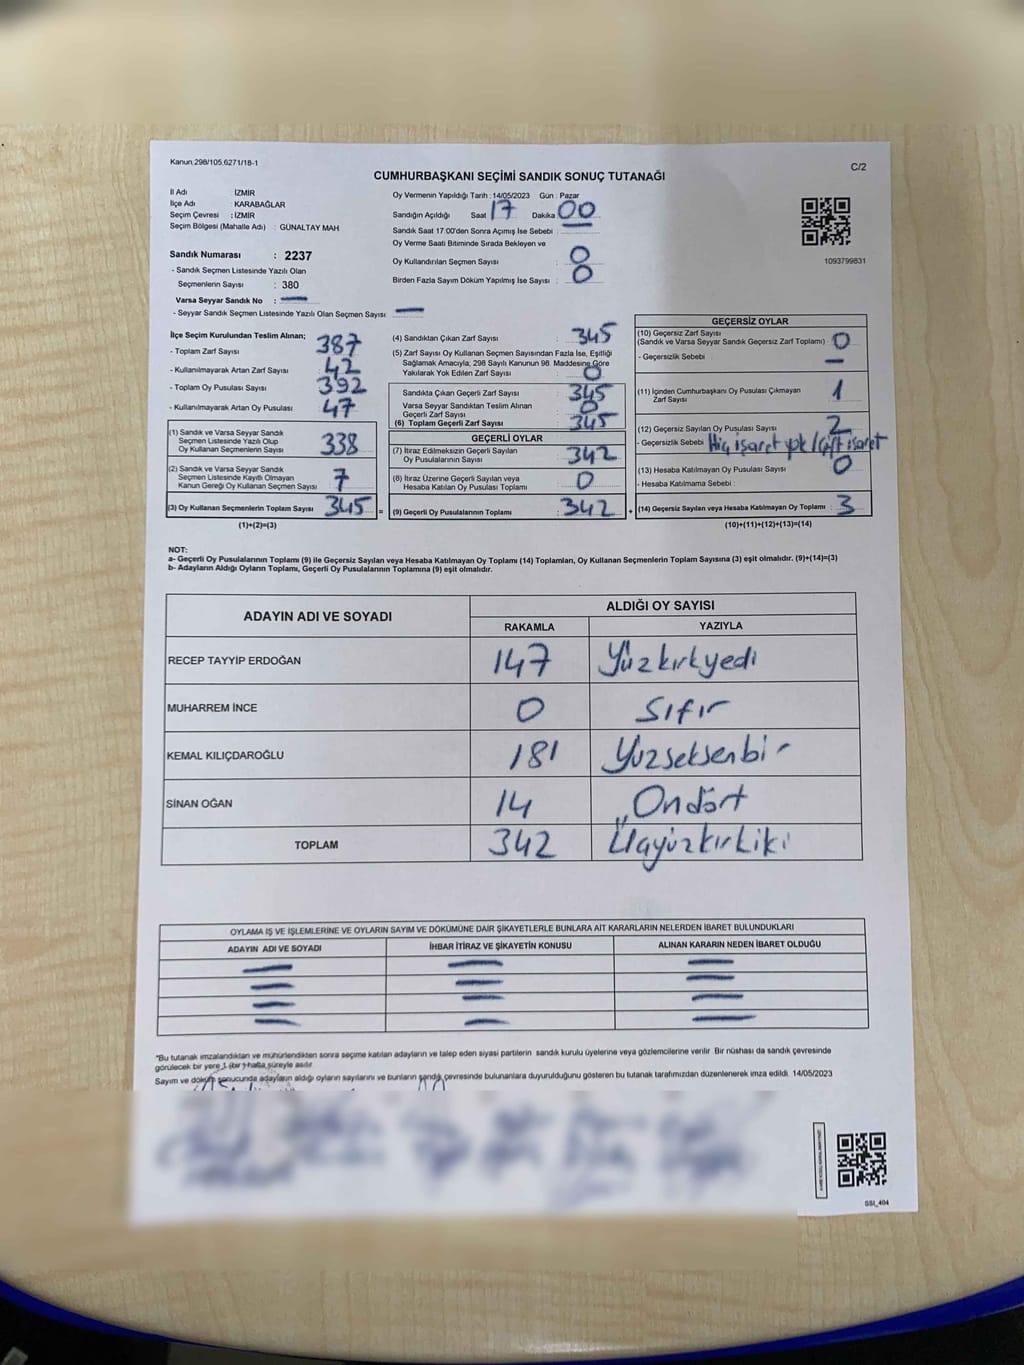 Kanun 298/105,6271/18-1
C/2
CUMHURBAŞKANI SEÇİMİ SANDIK SONUÇ TUTANAĞI
İl Adı İZMİR
İlçe Adı KARABAĞLAR
Seçim Çevresi : İZMİR
Seçim Bölgesi (Mahalle Adı) : GÜNALTAY MAH
Sandık Numarası : 2237
- Sandık Seçmen Listesinde Yazılı Olan
Seçmenlerin Sayısı : 380
Varsa Seyyar Sandık No : —
- Seyyar Sandık Seçmen Listesinde Yazılı Olan Seçmen Sayısı : —
Oy Vermenin Yapıldığı Tarih : 14/05/2023 Gün : Pazar
Sandığın Açıldığı Saat 17 Dakika 00
Sandık Saat 17:00'den Sonra Açımış İse Sebebi : —
Oy Verme Saati Bitiminde Sırada Bekleyen ve
Oy Kullandırılan Seçmen Sayısı : 0
Birden Fazla Sayım Döküm Yapılmış İse Sayısı : 0
1093799831
İlçe Seçim Kurulundan Teslim Alınan;
- Toplam Zarf Sayısı : 387
- Kullanılmayarak Artan Zarf Sayısı : 42
- Toplam Oy Pusulası Sayısı : 392
- Kullanılmayarak Artan Oy Pusulası : 47
(1) Sandık ve Varsa Seyyar Sandık
Seçmen Listesinde Yazılı Olup
Oy Kullanan Seçmenlerin Sayısı : 338
(2) Sandık ve Varsa Seyyar Sandık
Seçmen Listesinde Kayıtlı Olmayan
Kanun Gereği Oy Kullanan Seçmen Sayısı : 7
(3) Oy Kullanan Seçmenlerin Toplam Sayısı : 345 =
(1)+(2)=(3)
(4) Sandıktan Çıkan Zarf Sayısı : 345
(5) Zarf Sayısı Oy Kullanan Seçmen Sayısından Fazla İse, Eşitliği
Sağlamak Amacıyla; 298 Sayılı Kanunun 98. Maddesine Göre
Yakılarak Yok Edilen Zarf Sayısı : 0
Sandıkta Çıkan Geçerli Zarf Sayısı : 345
Varsa Seyyar Sandıktan Teslim Alınan
Geçerli Zarf Sayısı : 0
(6) Toplam Geçerli Zarf Sayısı : 345
GEÇERLİ OYLAR
(7) İtiraz Edilmeksizin Geçerli Sayılan
Oy Pusulalarının Sayısı : 342
(8) İtiraz Üzerine Geçerli Sayılan veya
Hesaba Katılan Oy Pusulası Toplamı : 0
(9) Geçerli Oy Pusulalarının Toplamı : 342 +
GEÇERSİZ OYLAR
(10) Geçersiz Zarf Sayısı
(Sandık ve Varsa Seyyar Sandık Geçersiz Zarf Toplamı) : 0
- Geçersizlik Sebebi : —
(11) İçinden Cumhurbaşkanı Oy Pusulası Çıkmayan
Zarf Sayısı : 1
(12) Geçersiz Sayılan Oy Pusulası Sayısı : 2
- Geçersizlik Sebebi : Hiç işaret yok / Çift işaret
(13) Hesaba Katılmayan Oy Pusulası Sayısı : 0
- Hesaba Katılmama Sebebi :
(14) Geçersiz Sayılan veya Hesaba Katılmayan Oy Toplamı : 3
(10)+(11)+(12)+(13)=(14)
NOT:
a- Geçerli Oy Pusulalarının Toplamı (9) ile Geçersiz Sayılan veya Hesaba Katılmayan Oy Toplamı (14) Toplamları, Oy Kullanan Seçmenlerin Toplam Sayısına (3) eşit olmalıdır. (9)+(14)=(3)
b- Adayların Aldığı Oyların Toplamı, Geçerli Oy Pusulalarının Toplamına (9) eşit olmalıdır.
ADAYIN ADI VE SOYADI ALDIĞI OY SAYISI
RAKAMLA YAZIYLA
RECEP TAYYİP ERDOĞAN 147 Yüzkırkyedi
MUHARREM İNCE 0 Sıfır
KEMAL KILIÇDAROĞLU 181 Yüzseksenbir
SİNAN OĞAN 14 Ondört
TOPLAM 342 Üçyüzkırkiki
OYLAMA İŞ VE İŞLEMLERİNE VE OYLARIN SAYIM VE DÖKÜMÜNE DAİR ŞİKAYETLERLE BUNLARA AİT KARARLARIN NELERDEN İBARET BULUNDUKLARI
ADAYIN ADI VE SOYADI İHBAR İTİRAZ VE ŞİKAYETİN KONUSU ALINAN KARARIN NEDEN İBARET OLDUĞU
— — —
— — —
— — —
— — —
*Bu tutanak imzalandıktan ve mühürlendikten sonra seçime katılan adayların ve talep eden siyasi partilerin sandık kurulu üyelerine veya gözlemcilerine verilir. Bir nüshası da sandık çevresinde
görülecek bir yere 1 (bir ) hafta süreyle asılır.
Sayım ve döküm sonucunda adayların aldığı oyların sayılarını ve bunların sandık çevresinde bulunanlara duyurulduğunu gösteren bu tutanak tarafımızdan düzenlenerek imza edildi. 14/05/2023
SSI_404